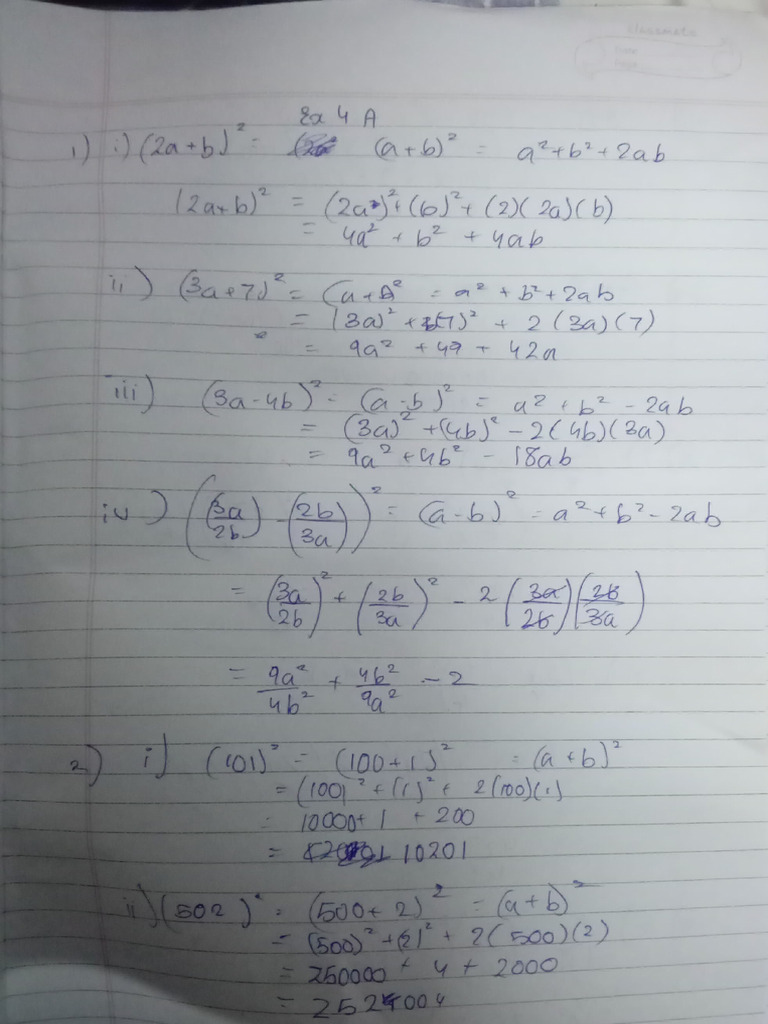 classmate
Date
Page
Ex 4 A
1) i) (2a+b)² = (a+b)² = a²+b²+2ab
(2a+b)² = (2a)²+(b)²+(2)(2a)(b)
= 4a² + b² + 4ab
ii) (3a+7)² = (a+b)² = a²+b²+2ab
= (3a)² + (7)² + 2(3a)(7)
= 9a² + 49 + 42a
iii) (3a-4b)² = (a-b)² = a²+b²-2ab
= (3a)²+(4b)²-2(4b)(3a)
= 9a²+4b² - 18ab
iv) ((3a/2b) - (2b/3a))² = (a-b)² = a²+b²-2ab
= (3a/2b)² + (2b/3a)² - 2(3a/2b)(2b/3a)
= 9a²/4b² + 4b²/9a² - 2
2) i) (101)² = (100+1)² = (a+b)²
= (100)²+(1)²+ 2(100)(1)
= 10000+1 +200
= 10201
ii) (502)² = (500+2)² = (a+b)²
= (500)²+(2)²+2(500)(2)
= 250000 + 4 + 2000
= 252004